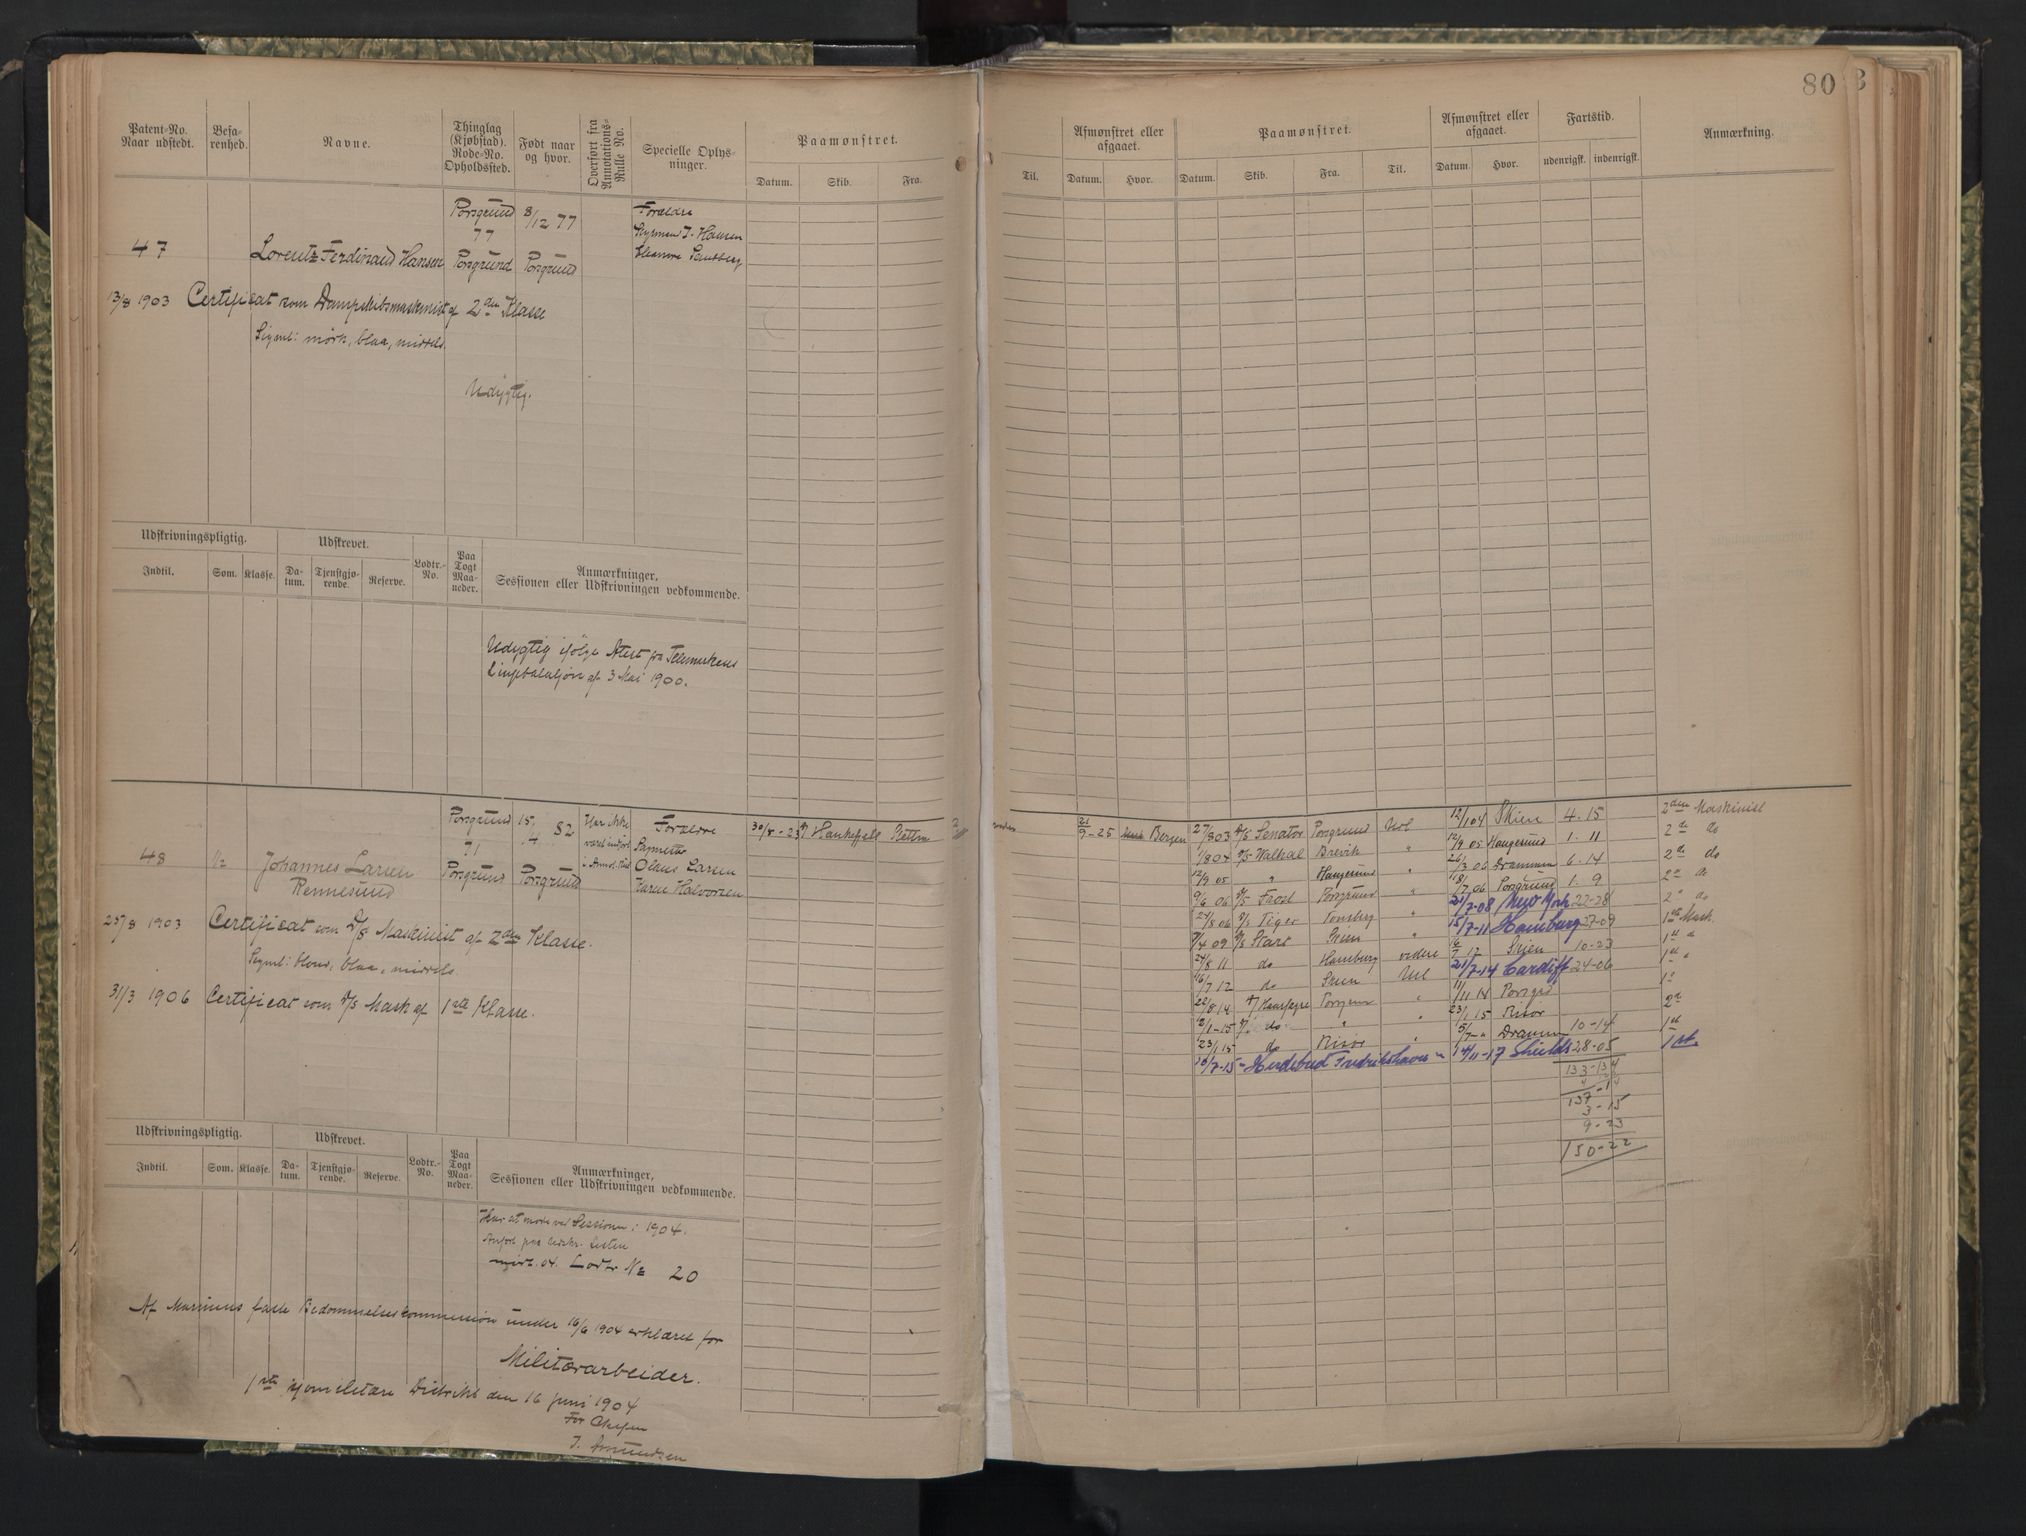 80
Patent-No. Naar udstedt.
Befarenhed.
Navne.
Thinglag (Kjøbstad). Rode-No. Opholdssted.
Født naar og hvor.
Overført fra Annotations-Rulle No.
Specielle Oplysninger.
Paamønstret.
Datum. Skib. Fra.
Til.
Afmønstret eller afgaaet.
Datum. Hvor.
Paamønstret.
Datum. Skib. Fra. Til.
Afmønstret eller afgaaet.
Datum. Hvor.
Fartstid.
udenrigsk. indenrigsk.
Anmærkning.
Porsgrund 8/12 77 Forældre
77 J. Hansen
47 Lorentz Ferdinand Hansen Porsgrund Porsgrund
13/8 1903 Certificat som Dampskibsmaskinist af 2den Klasse
Signal: mørk, blaa, middels.
Udygtig.
Udskrivningspligtig. Udskrevet. Lodtr.-No. Paa Togt Maaneder. Anmærkninger, Sessionen eller Udskrivningen vedkommende.
Indtil. Som. Klasse. Datum. Tjenstgjørende. Reserve.
Udygtig ifølge Attest fra Telemarkens
Linjebataljon af 3 Mai 1900.
Porsgrund 15/4 82 Har ikke været indført i Annot. Rul. Forældre 30/8-23 Rettm
71
48 1/2 Johannes Larsen Porsgrund Porsgrund Olaus Larsen
Rennesund Karen Halvorsen
25/8 1903 Certificat som D/S Maskinist af 2den Klasse.
Signal: blond, blaa, middels.
31/3 1906 Certificat som D/S Mask af 1ste Klasse.
21/9-25 Bergen 27/8 03 D/S Senator Porsgrund Udl 12/1 04 Skien 4-15 2den Maskinist
D/S Walhal Brevik " 12/9 05 Haugesund 1-11 2de do
12/9 05 " Haugesund 26/3 06 Drammen 6-14 2de do
9/6 06 D/S Frost Porsgrund " 7 06 Porsgrund 1-9 2de do
27/8 06 D/S Tiger Tønsberg " 21/7-08 New York 22-28
4 09 D/S Start Skien " 15/7-11 Hamburg 27-09 1ste Mask.
24/8 11 do Hamburg videre 7 12 Skien 10-23 1st "
16/7 12 do Skien Udl 21/7-14 Cardiff 24-06 1st "
22/8 14 Porsgrund " 11/11 14 Porsgrd
12/1-15 do " 23/1 15 Risør 2de
23/1 15 do Risør 5/7- " Drammen 10-14 1st
10/7-15 Fredrikshavn " 14/11-17 Shields 28-05 1st.
133-134
4-14
137-14
3-15
9-23
150-22
Udskrivningspligtig. Udskrevet. Lodtr.-No. Paa Togt Maaneder. Anmærkninger, Sessionen eller Udskrivningen vedkommende.
Indtil. Som. Klasse. Datum. Tjenstgjørende. Reserve.
Har at møde ved Sessionen i 1904.
Anført paa Udskr. Listen
04. Lodtr No 20
Af Marinens faste Bedømmelseskommission under 16/6 1904 erklæret for
Militærarbeider.
1ste sjømilitære Distrikt den 16 juni 1904
For Chefen